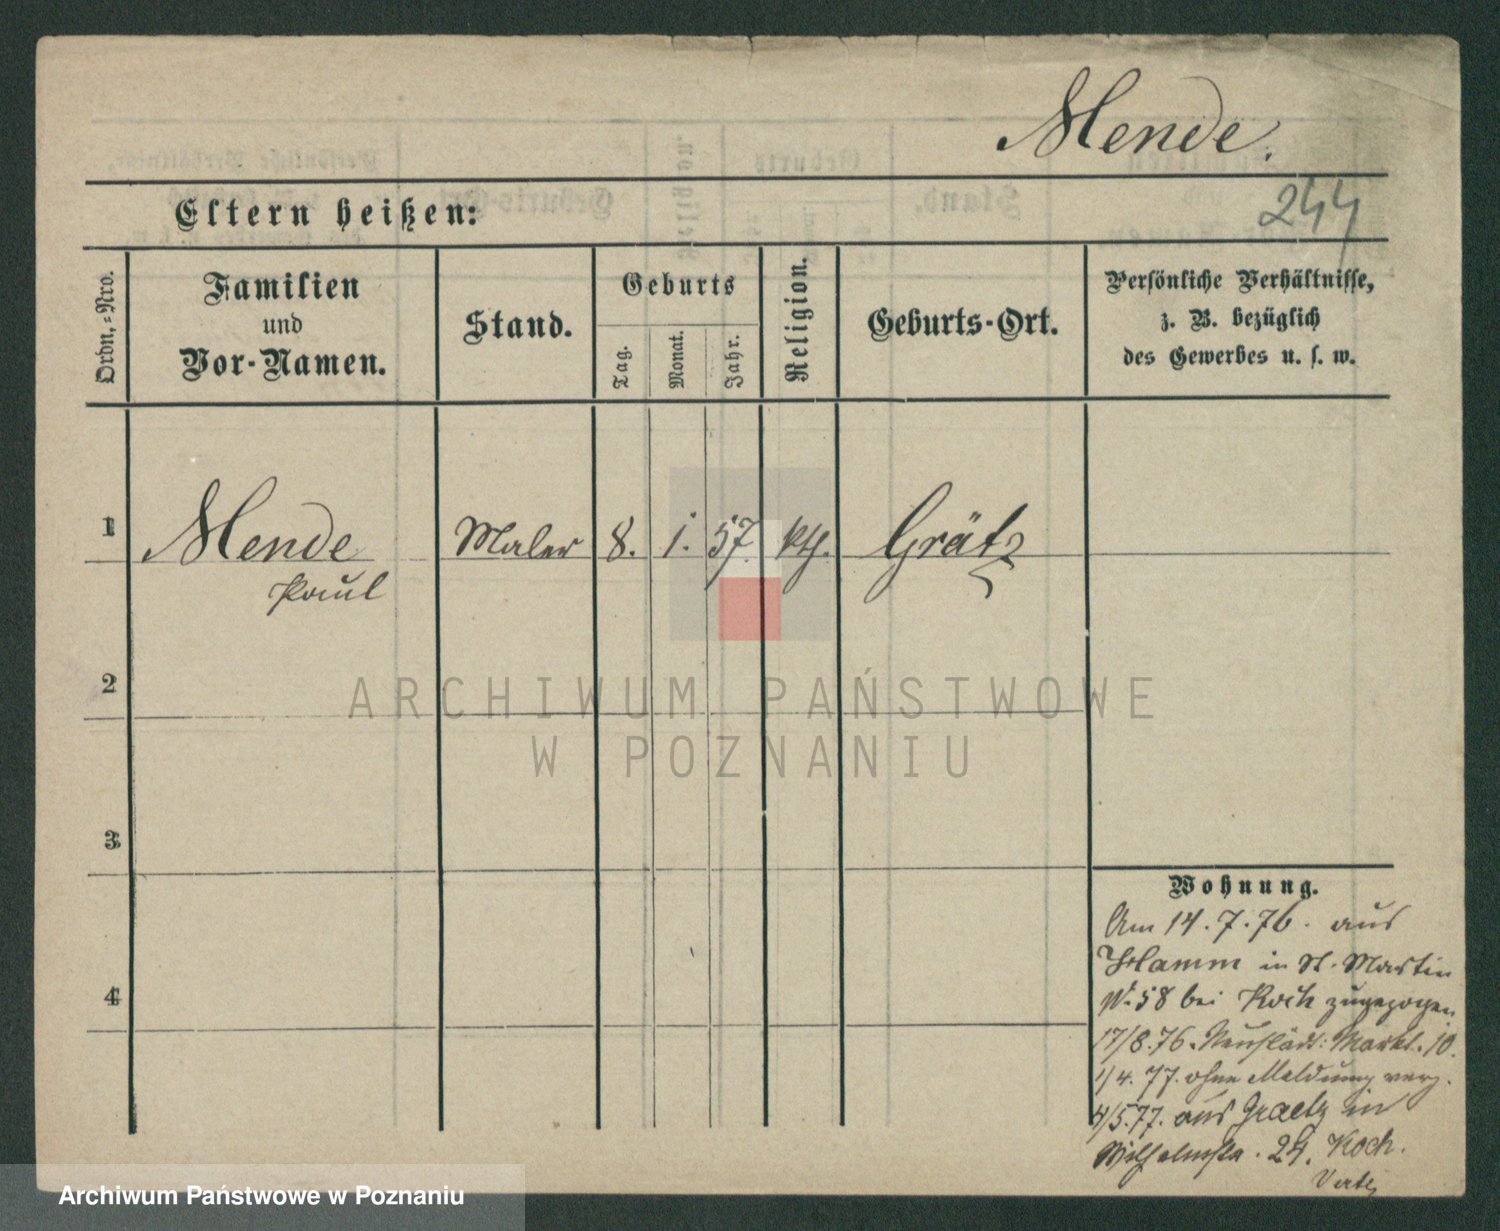 Mende.
244
Eltern heißen:
Ordn.-Nro.
Familien
und
Vor-Namen.
Stand.
Geburts
Tag.
Monat.
Jahr.
Religion.
Geburts-Ort.
Persönliche Verhältnisse,
z. B. bezüglich
des Gewerbes u. s. w.
1 Mende Maler 8. 1. 57. kth. Grätz
Paul
2
3
4
Wohnung.
Am 14.7.76. aus
in St. Martin
N. 58 bei Koch zugezogen
17/8.76. Neustädt: Markt. 10.
1/4. 77. ohne Meldung verz.
4/5.77. aus Graetz in
Wilhelmsstr. 24. Koch.
ARCHIWUM PAŃSTWOWE
W POZNANIU
Archiwum Państwowe w Poznaniu